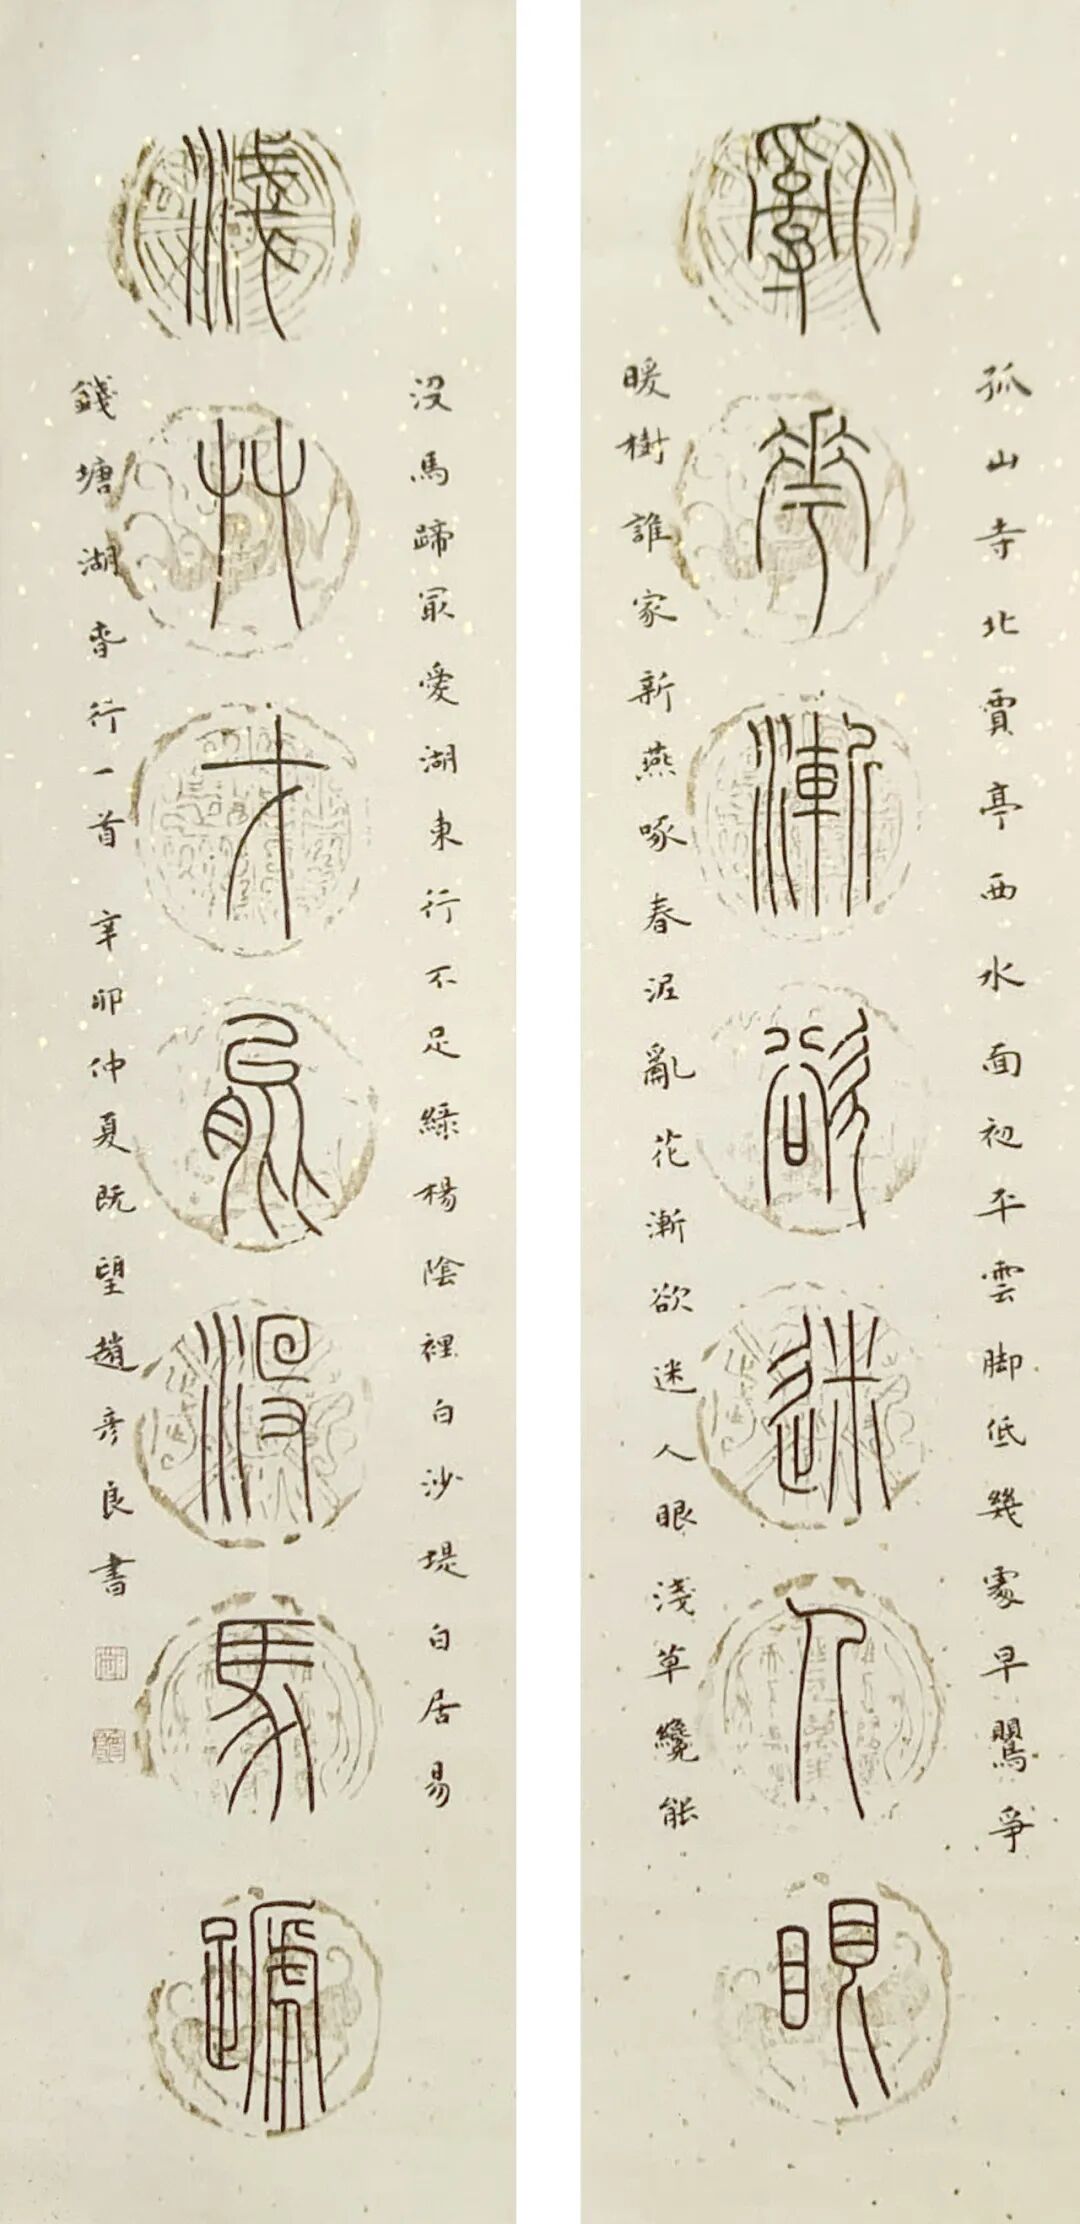 孤山寺北賈亭西水面初平雲脚低幾處早鸎爭
亂華漸欲迷人眼
暖樹誰家新燕啄春泥亂花漸欲迷人眼淺草纔能
沒馬蹄冣愛湖東行不足綠楊陰裡白沙堤白居易
淺艸才能沒馬蹏
錢塘湖旾行一首 辛卯仲夏既望趙彥良書